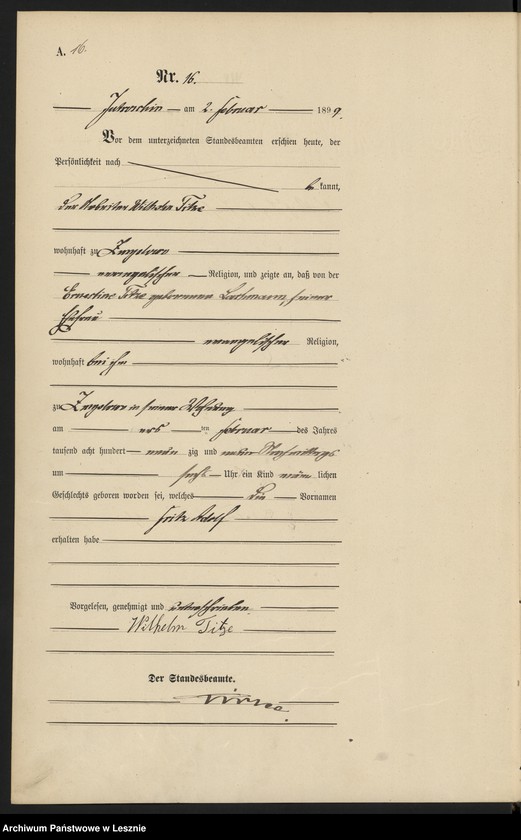 A. 16.
Nr. 16.
Jutroschin am 2. Februar 1899.
Vor dem unterzeichneten Standesbeamten erschien heute, der
Persönlichkeit nach
be kannt,
der Arbeiter Wilhelm Titze
wohnhaft zu
evangelischer Religion, und zeigte an, daß von der
Ernestine Titze geborenen Lachmann, seiner
Ehefrau
evangelischer Religion,
wohnhaft bei ihm
zu in seiner Wohnung
am ten Februar des Jahres
tausend acht hundert neun zig und neun Nachmittags
um sechs Uhr ein Kind männ lichen
Geschlechts geboren worden sei, welches die Vornamen
Fritz Adolf
erhalten habe
Vorgelesen, genehmigt und unterschrieben
Wilhelm Titze
Der Standesbeamte.
Archiwum Państwowe w Lesznie